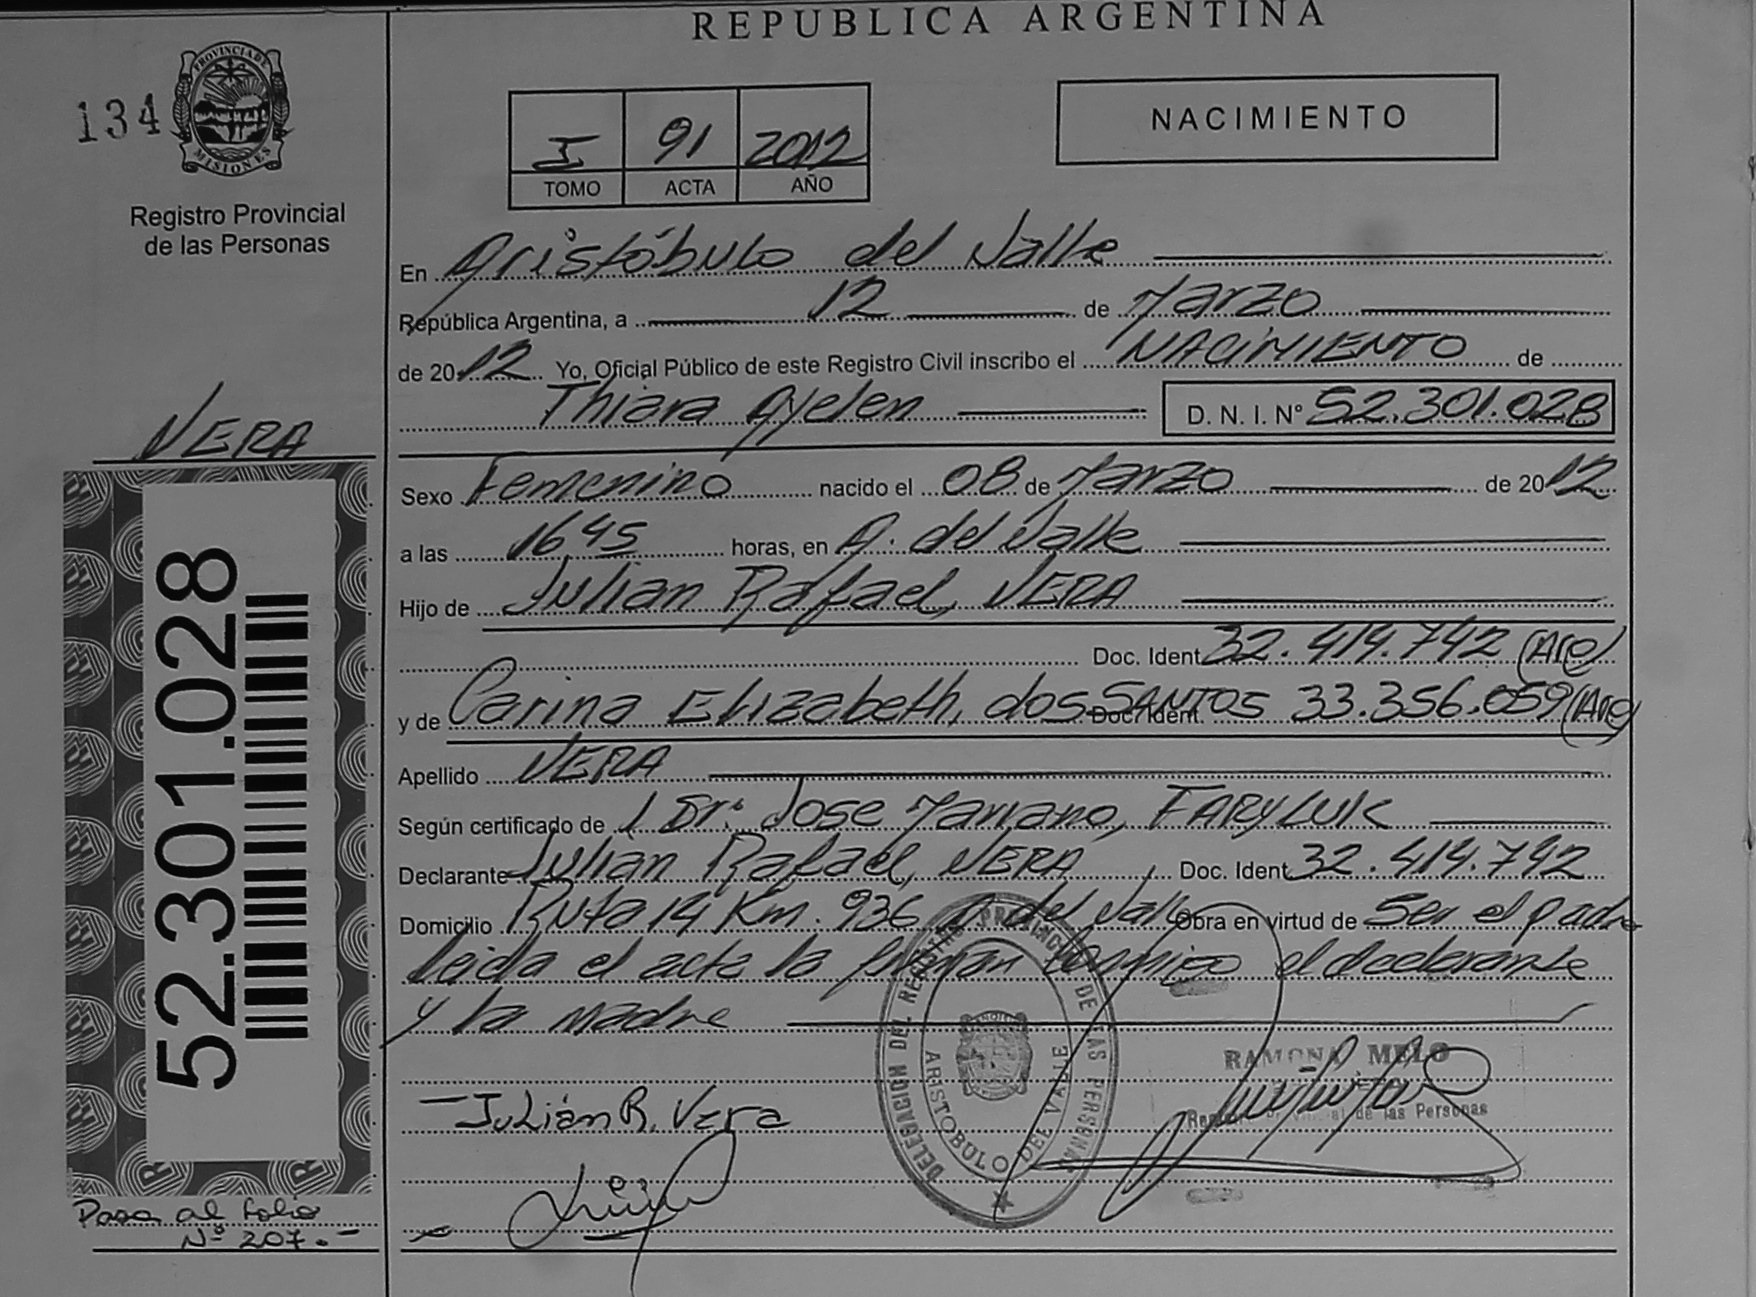 REPUBLICA ARGENTINA
134
PROVINCIA DE MISIONES
Registro Provincial
de las Personas
I 91 2012
TOMO ACTA AÑO
NACIMIENTO
En Aristóbulo del Valle
República Argentina, a 12 de Marzo
de 2012 Yo, Oficial Público de este Registro Civil inscribo el NACIMIENTO de
Thiara Ayelen D. N. I. N° 52.301.028
VERA
Sexo Femenino nacido el 08 de Marzo de 2012
a las 1645 horas, en A. del Valle
Hijo de Julian Rafael, VERA
Doc. Ident. 32.414.742 (Arg)
y de Carina Elizabeth, dos SANTOS Doc. Ident. 33.356.059 (Arg)
Apellido VERA
Según certificado de Dr. Jose Mariano, FARYLUK
Declarante Julian Rafael, VERA Doc. Ident. 32.414.742
Domicilio Ruta 14 Km. 936 A. del Valle Obra en virtud de Ser el padre
leida el acta la firman conmigo el declarante
y la madre
52.301.028
DELEGACION DEL REGISTRO PROVINCIAL DE LAS PERSONAS
ARISTOBULO DEL VALLE
RAMONA MELO
de las Personas
Julián R. Vera
Pasa al folio
Nº 207.-